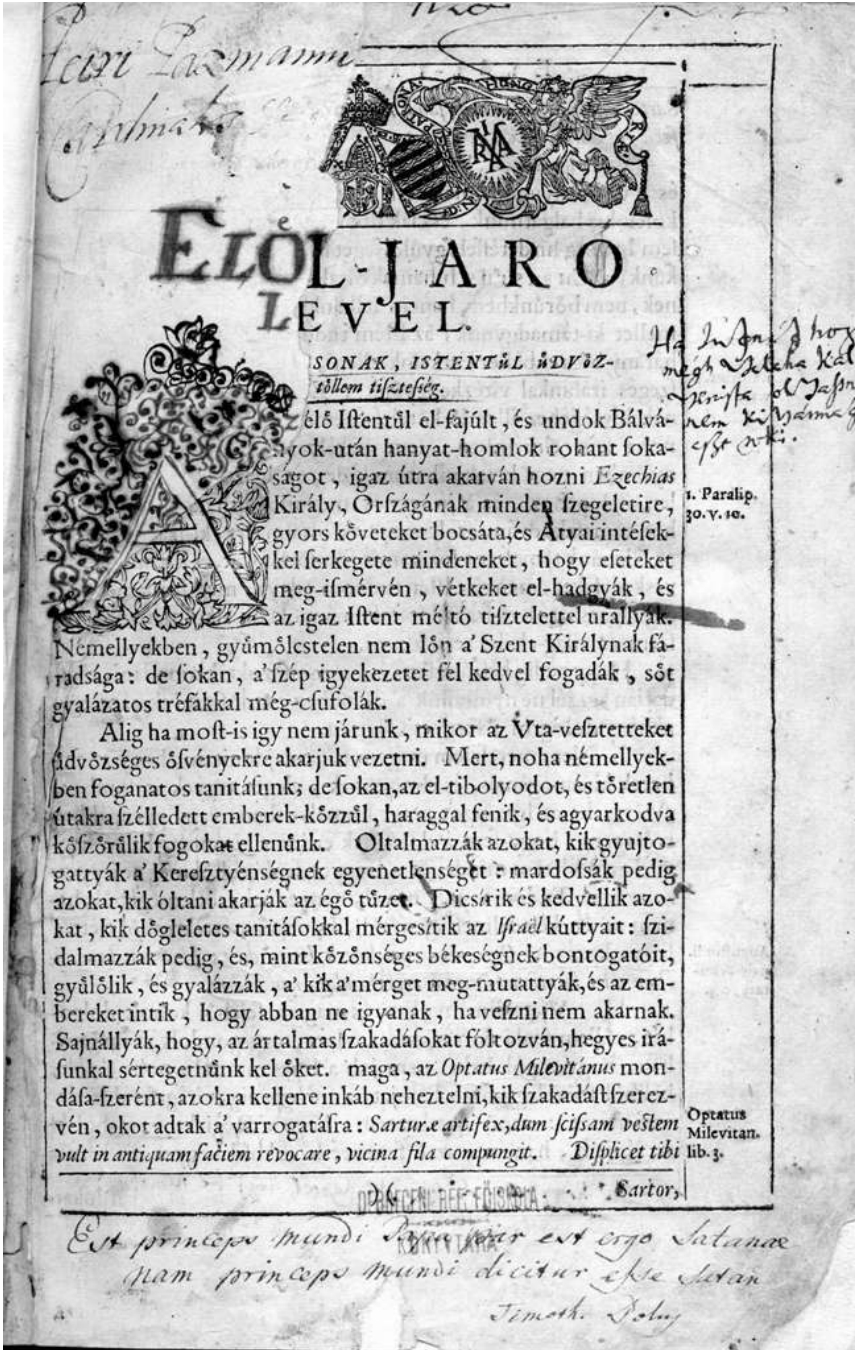 Petri Pazmanni
Cardinalis
PATRONA HUNGARIÆ
ELŐL-JARO
LEVEL.
SONAK, ISTENTűL üDVőZ-
tőllem tiſzteſég.
Az élő Iſtentűl el-fajúlt, és undok Bálvá-
nyok-után hanyat-homlok rohant ſoka-
ságot, igaz útra akarván hozni Ezechias
Király, Orſzágának minden ſzegeletire,
gyors kőveteket bocsáta, és Atyai intéſek-
kel ſerkegete mindeneket, hogy eſeteket
meg-iſmérvén, vétkeket el-hadgyák, és
az igaz Iſtent méltó tiſztelettel urallyák.
Némellyekben, gyűmőlcstelen nem lőn a' Szent Királynak fá-
radsága: de ſokan, a' ſzép igyekezetet fél kedvel fogadák, sőt
gyalázatos tréfákkal még-csufolák.
Alig ha moſt-is igy nem járunk, mikor az Uta-veſztetteket
üdvőzséges őſvényekre akarjuk vezetni. Mert, noha némellyek-
ben foganatos tanitáſunk; de ſokan, az el-tibolyodot, és tőretlen
útakra ſzélledett emberek-kőzzűl, haraggal fenik, és agyarkodva
kőſzőrűlik fogokat ellenűnk. Oltalmazzák azokat, kik gyujto-
gattyák a' Kereſztyénségnek egyenetlenségét: mardoſsák pedig
azokat, kik óltani akarják az égő tűzet. Dicsírik és kedvellik azo-
kat, kik dőgleletes tanitáſokkal mérgesítik az Iſraël kúttyait: ſzi-
dalmazzák pedig, és, mint kőzőnséges békeségnek bontogatóit,
gyűlőlik, és gyalázzák, a' kik a' mérget meg-mutattyák, és az em-
bereket intik, hogy abban ne igyanak, ha veſzni nem akarnak.
Sajnállyák, hogy, az ártalmas ſzakadáſokat fóltozván, hegyes irá-
ſunkal sértegetnűnk kel őket. maga, az Optatus Milevitánus mon-
dáſa-ſzerént, azokra kellene inkáb neheztelni, kik ſzakadáſt ſzerez-
vén, okot adtak a' varrogatáſra: Sarturæ artifex, dum ſciſsam veſtem
vult in antiquam faciem revocare, vicina fila compungit. Diſplicet tibi
Sartor,
1. Paralip.
30. v. 10.
Optatus
Milevitan.
lib. 3.
DEBRECENI REF. FŐISKOLA
KÖNYVTÁRA
Est princeps mundi Papa par est ergo Satanae
nam princeps mundi dicitur esse Satan